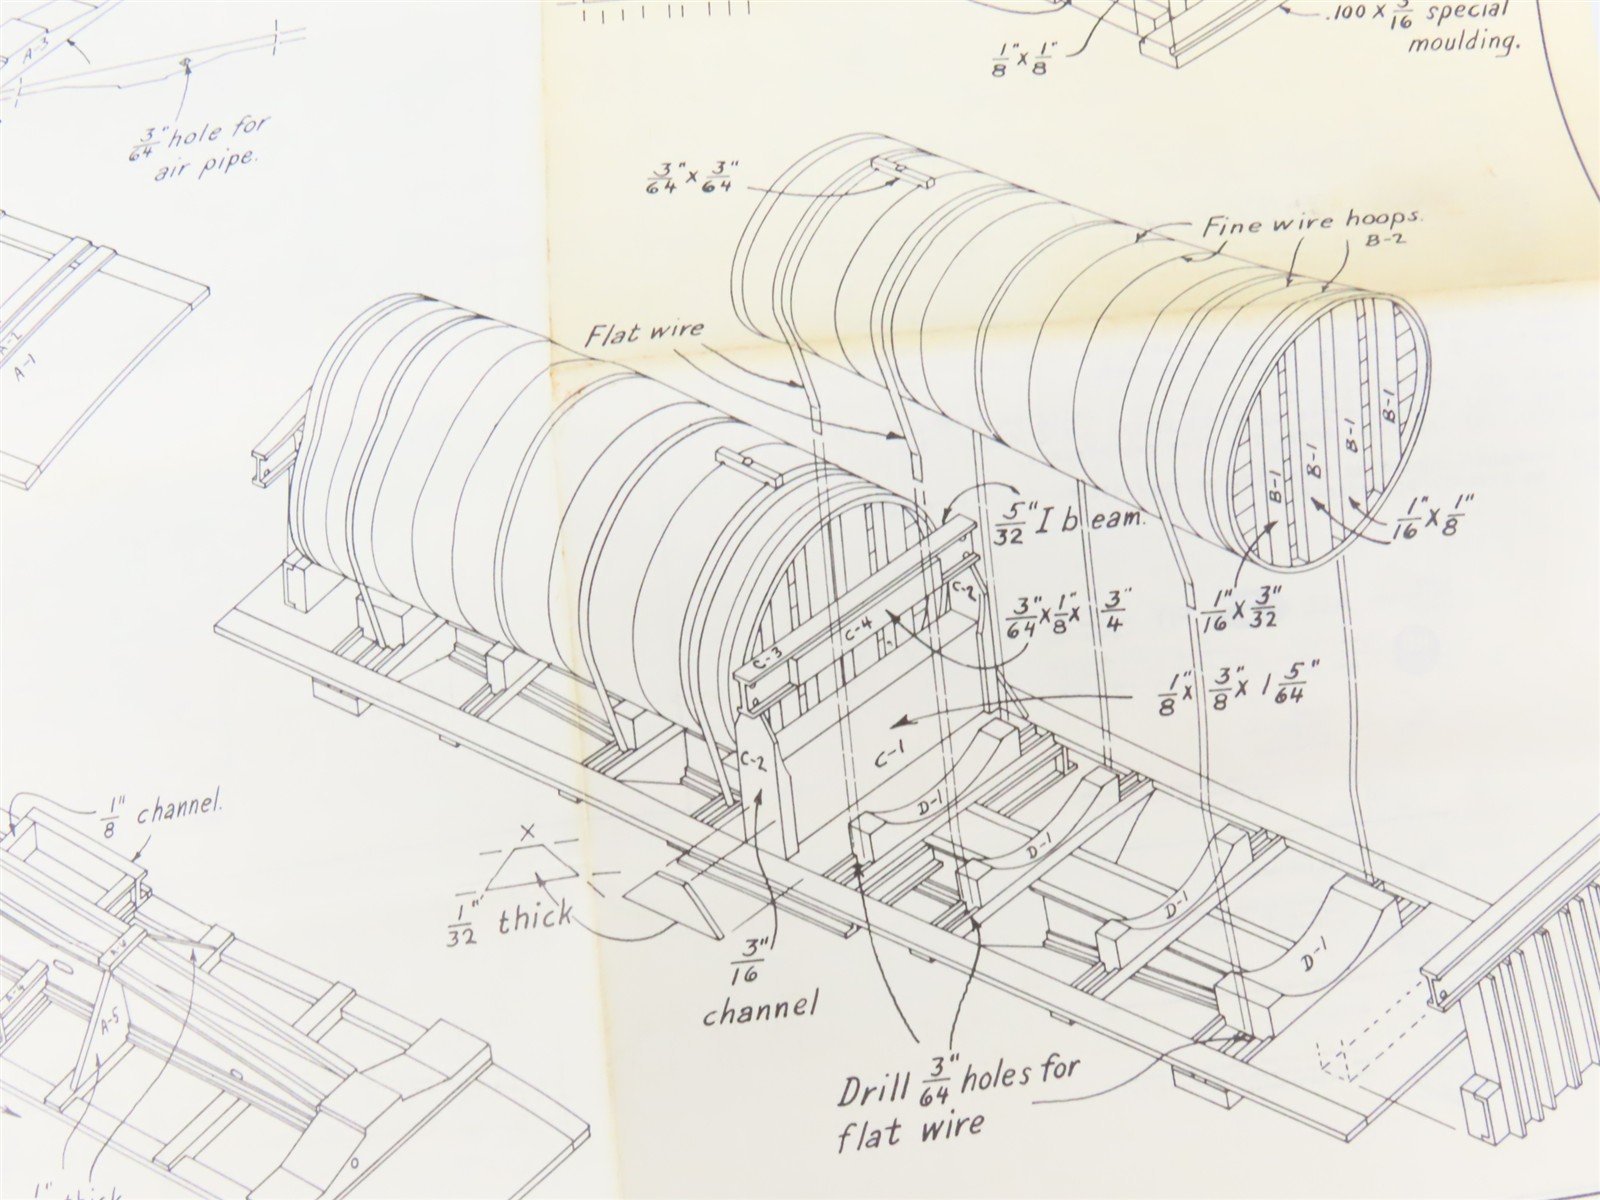 A-3
3/64" hole for
air pipe.
1/8" x 1/8"
.100 x 3/16 special
moulding.
3/64" x 3/64"
Fine wire hoops.
B-2
Flat wire
A-2
A-1
B-1
B-1
B-1
B-1
1/16" x 1/8"
5/32" I beam.
1/16" x 3/32"
3/64" x 1/8" x 3/4
C-2
C-4
C-3
1/8" x 3/8" x 1 5/64"
C-2
C-1
D-1
D-1
D-1
D-1
1/8" channel.
X
1/32" thick
3/16"
channel
A-4
A-5
Drill 3/64" holes for
flat wire
1" thick